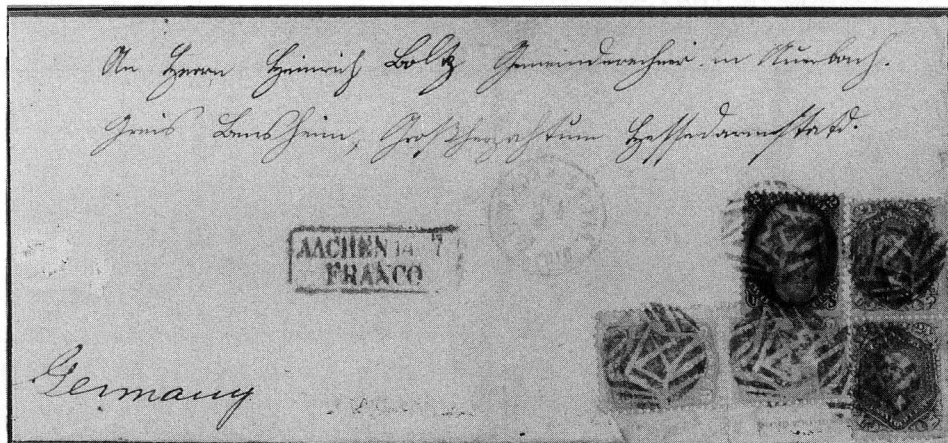 An Herrn Heinrich Boltz Gemeinderechner in Auerbach.
Greis Bensheim, Großherzahtum Hessedarmstatd.
AACHEN 14 7
FRANCO
Germany